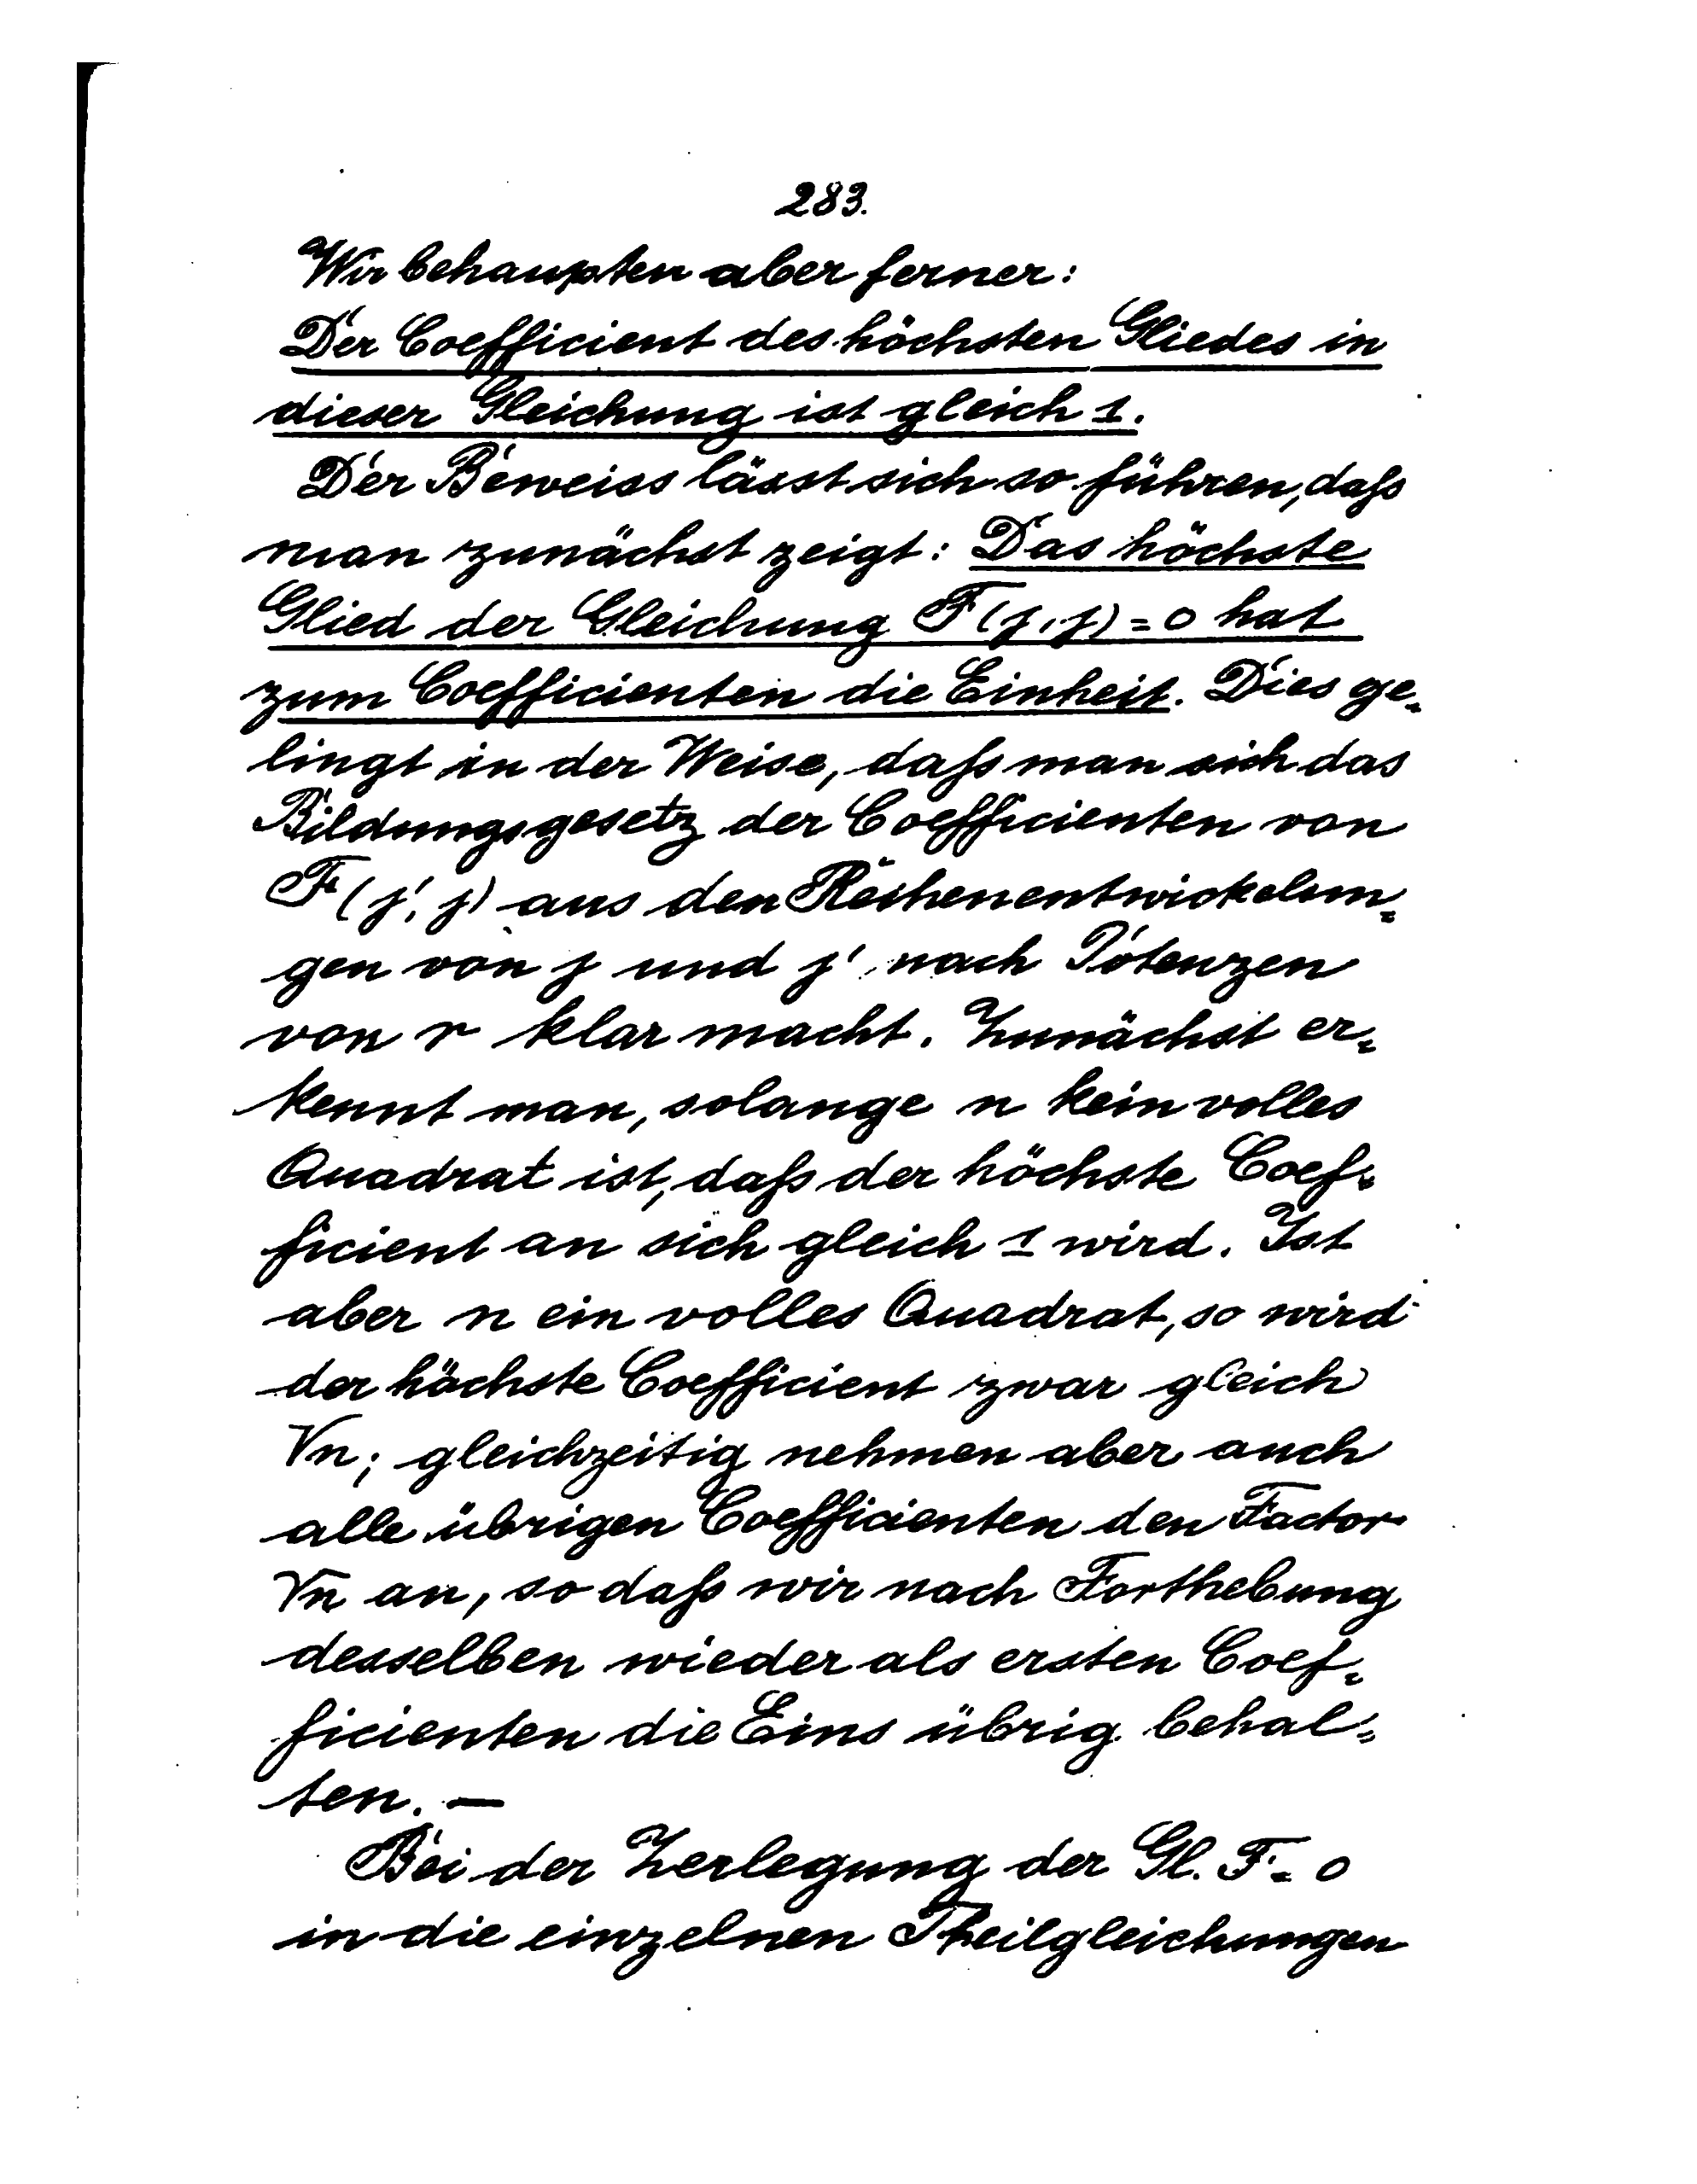 283.
Wir behaupten aber ferner:
Der Coefficient des höchsten Gliedes in
dieser Gleichung ist gleich 1.
Der Beweiss lässt sich so führen, daß
man zunächst zeigt: Das höchste
Glied der Gleichung F(j, j) = 0 hat
zum Coefficienten die Einheit. Dies ge-
lingt in der Weise, daß man sich das
Bildungsgesetz der Coefficienten von
F(j', j) aus den Reihenentwickelun-
gen von j und j' nach Potenzen
von r klar macht. Zunächst er-
kennt man, solange n kein volles
Quadrat ist, daß der höchste Coef-
ficient an sich gleich 1 wird. Ist
aber n ein volles Quadrat, so wird
der höchste Coefficient zwar gleich
√n; gleichzeitig nehmen aber auch
alle übrigen Coefficienten den Factor
√n an, so daß wir nach Forthebung
desselben wieder als ersten Coef-
ficienten die Eins übrig behal-
ten. —
Bei der Zerlegung der Gl. F = 0
in die einzelnen Theilgleichungen